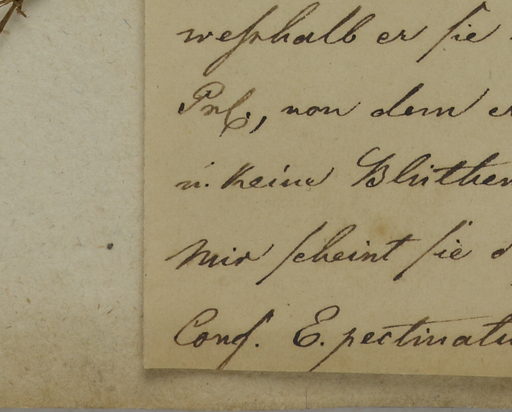 weßhalb er sie
Prl., von dem er
u. keine Blüthen
Mir scheint sie d
Conf. E. pectinatu